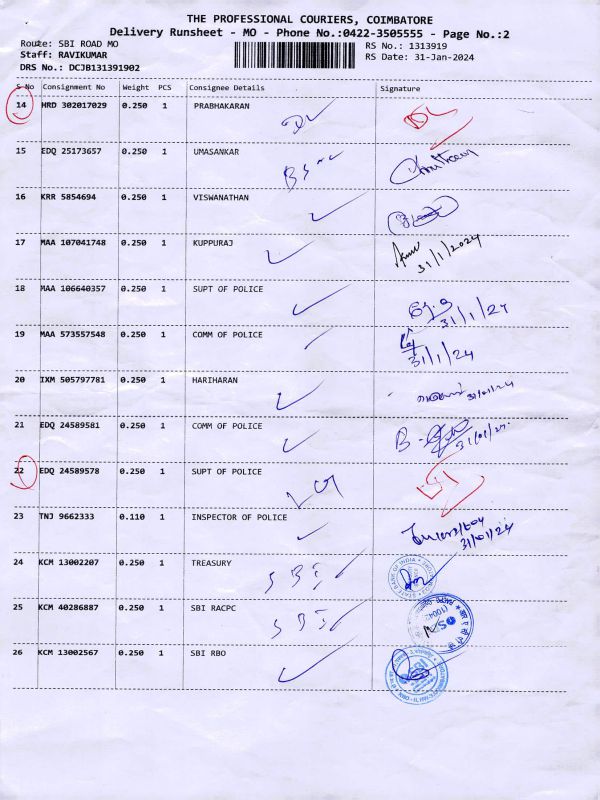 THE PROFESSIONAL COURIERS, COIMBATORE
Delivery Runsheet - MO - Phone No.:0422-3505555 - Page No.:2
Route: SBI ROAD MO RS No.: 1313919
Staff: RAVIKUMAR RS Date: 31-Jan-2024
DRS No.: DCJB131391902
S No Consignment No Weight PCS Consignee Details Signature
14 HRD 302017029 0.250 1 PRABHAKARAN DL DL
15 EDQ 25173657 0.250 1 UMASANKAR
16 KRR 5854694 0.250 1 VISWANATHAN
17 MAA 107041748 0.250 1 KUPPURAJ 31/1/2024
18 MAA 106640357 0.250 1 SUPT OF POLICE 31/1/24
19 MAA 573557548 0.250 1 COMM OF POLICE 31/1/24
20 IXM 505797781 0.250 1 HARIHARAN 31/01/24
21 EDQ 24589581 0.250 1 COMM OF POLICE
22 EDQ 24589578 0.250 1 SUPT OF POLICE
23 TNJ 9662333 0.110 1 INSPECTOR OF POLICE 31/01/24
24 KCM 13002207 0.250 1 TREASURY SBI STATE BANK OF INDIA
25 KCM 40286887 0.250 1 SBI RACPC SBI
26 KCM 13002567 0.250 1 SBI RBO